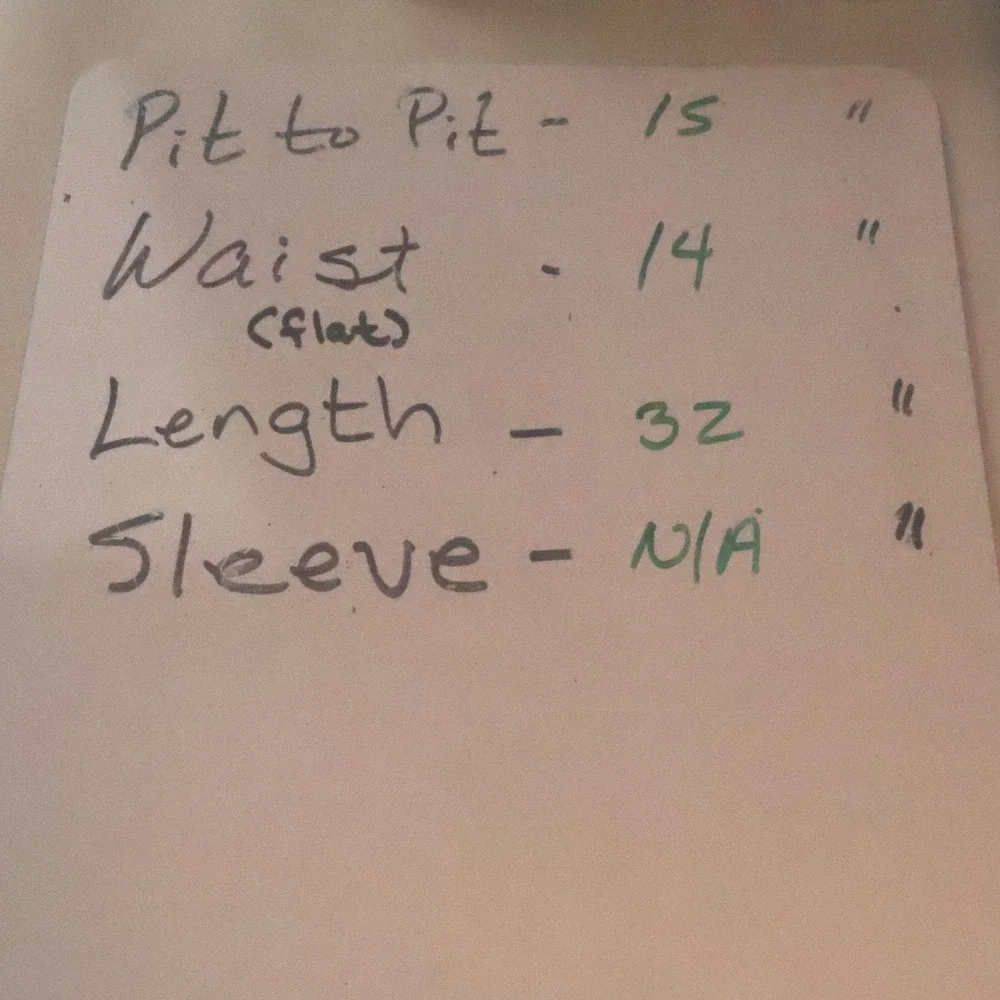 Pit to Pit - 15 "
Waist - 14 "
(flat)
Length - 32 "
Sleeve - N/A "